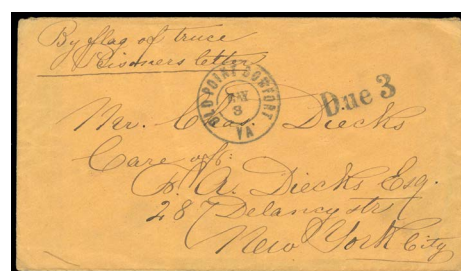 By flag of truce
Prisoners letter
OLD POINT COMFORT
MAY
3
VA
Due 3
Mr. Chas. Diecks
Care of:
F. A. Diecks Esq.
287 Delancy str
New York City